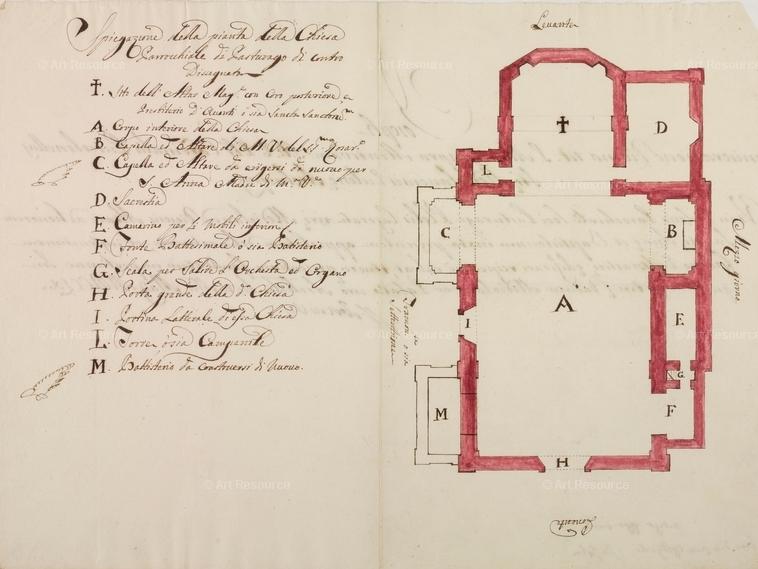 Spiegazione della pianta della Chiesa
Parrochiale di Parturago di contro
Disegnata
✝. Siti dell'Altar Magre con Coro posteriore, e
A Corpo interiore della Chiesa
B Capella ed Altare di M. V. del SSmo Rosario
C. Capella ed Altare da erigersi di nuovo per
S. Anna Madre di Ma Va
D. Sacrestia
E Camarino per li Mobili inferiori
F Fonte Battesimale ò sia Batisterio
G. Scala per Salire l'Orchesta ed Organo
H. Porta grande della da Chiesa
I. Portina Latterale di essa Chiesa
L. Torre ò sia Campanile
M Battisterio da Construersi di Nuovo.
Levante
✝
D
L
C
B
Mezzo giorno
A
I
E
G
M
F
H
© Art Resource
© Art Resource
© Art Resource
© Art Resource
© Art Resource
© Art Resource